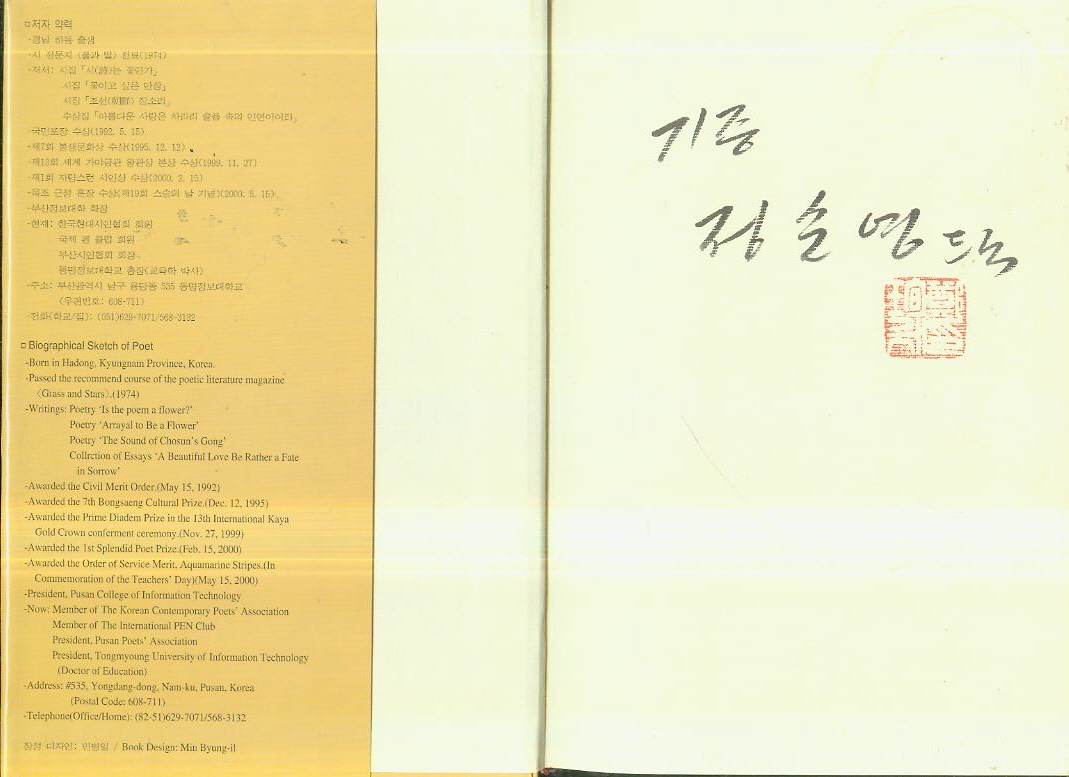 □ 저자 약력
-경남 하동 출생
-시 전문지 〈풀과 별〉 천료(1974)
-저서: 시집 「시(詩)는 꽃인가」
시집 「꽃이고 싶은 단장」
시집 「조선(朝鮮) 징소리」
수상집 「아름다운 사랑은 차라리 슬픔 속의 인연이어라」
-국민포장 수상(1992. 5. 15)
-제7회 봉생문화상 수상(1995. 12. 12)
-제13회 세계 가야금관 왕관상 본상 수상(1999. 11. 27)
-제1회 자랑스런 시인상 수상(2000. 2. 15)
-옥조 근정 훈장 수상(제19회 스승의 날 기념)(2000. 5. 15)
-부산정보대학 학장
-현재: 한국현대시인협회 회원
국제 펜 클럽 회원
부산시인협회 회장
동명정보대학교 총장(교육학 박사)
-주소: 부산광역시 남구 용당동 535 동명정보대학교
(우편번호: 608-711)
-전화(학교/집): (051)629-7071/568-3132
□ Biographical Sketch of Poet
-Born in Hadong, Kyungnam Province, Korea.
-Passed the recommend course of the poetic literature magazine
〈Grass and Stars〉.(1974)
-Writings: Poetry ‘Is the poem a flower?’
Poetry ‘Arrayal to Be a Flower’
Poetry ‘The Sound of Chosun’s Gong’
Collrction of Essays ‘A Beautiful Love Be Rather a Fate
in Sorrow’
-Awarded the Civil Merit Order.(May 15, 1992)
-Awarded the 7th Bongsaeng Cultural Prize.(Dec. 12, 1995)
-Awarded the Prime Diadem Prize in the 13th International Kaya
Gold Crown conferment ceremony.(Nov. 27, 1999)
-Awarded the 1st Splendid Poet Prize.(Feb. 15, 2000)
-Awarded the Order of Service Merit, Aquamarine Stripes.(In
Commemoration of the Teachers’ Day)(May 15, 2000)
-President, Pusan College of Information Technology
-Now: Member of The Korean Contemporary Poets’ Association
Member of The International PEN Club
President, Pusan Poets’ Association
President, Tongmyoung University of Information Technology
(Doctor of Education)
-Address: #535, Yongdang-dong, Nam-ku, Pusan, Korea
(Postal Code: 608-711)
-Telephone(Office/Home): (82-51)629-7071/568-3132
장정 디자인: 민병일 / Book Design: Min Byung-il
기증
정순영